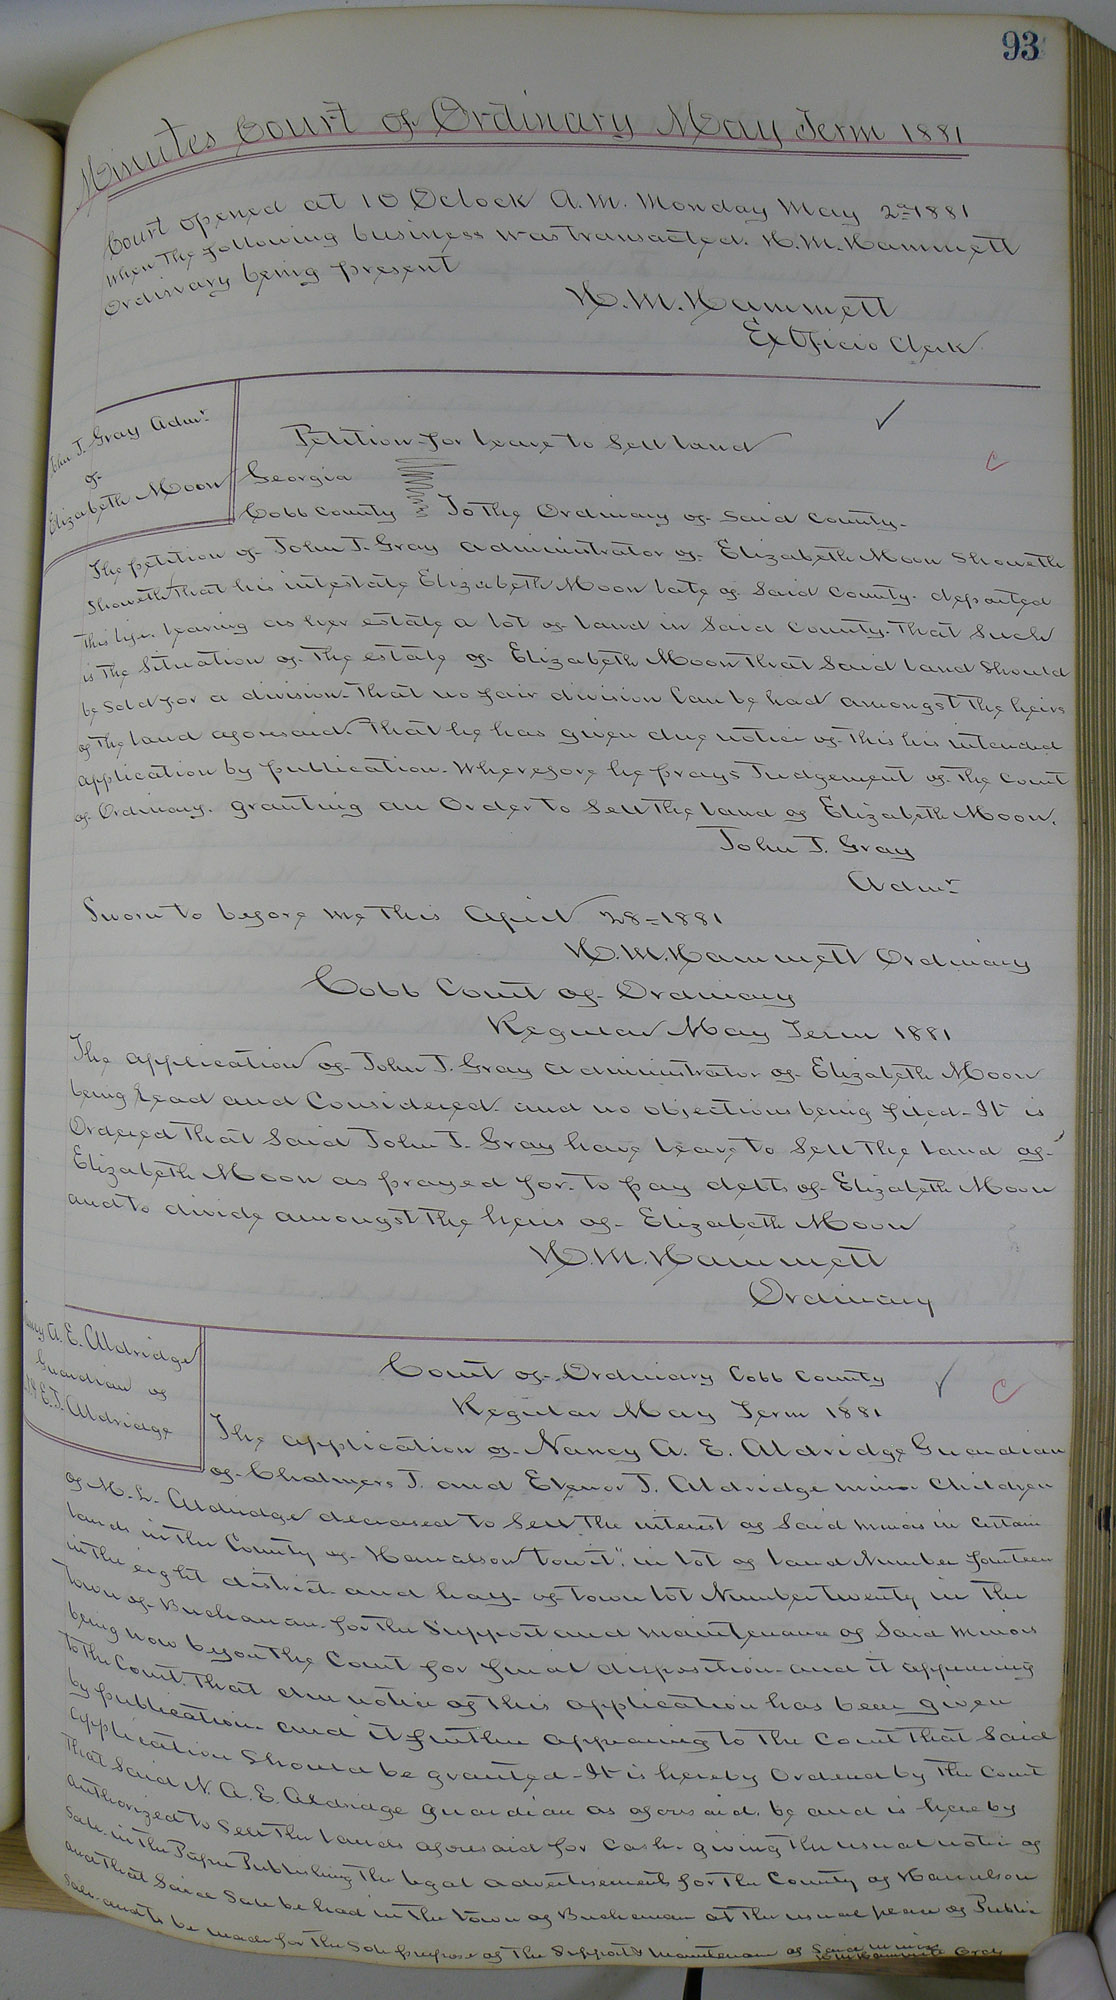 93
Minutes Court of Ordinary May Term 1881
Court opened at 10 Oclock A.M. Monday May 2nd 1881
when the following business was transacted. H.M. Hammett
Ordinary being present
H. M. Hammett
Ex Oficio Clerk
John J. Gray Admr
of
Elizabeth Moon
Petition for leave to sell land
Georgia
Cobb County To the Ordinary of said County.
The petition of John J. Gray Administrator of Elizabeth Moon Showeth
Showeth that his intestate Elizabeth Moon late of said County. departed
this life. leaving as her estate a lot of land in said County. That such
is the situation of the estate of Elizabeth Moon that said land should
be sold for a division. That no fair division can be had amongst the heirs
of the land aforesaid. That he has given due notice of this his intended
application by publication. Wherefore he prays Judgement of the Court
of Ordinary. granting an Order to sell the land of Elizabeth Moon.
John J. Gray
Admr
Sworn to before me this April 28 - 1881
H. M. Hammett Ordinary
Cobb Court of Ordinary
Regular May Term 1881
The application of John J. Gray Administrator of Elizabeth Moon
being read and Considered. and no objections being filed - It is
Ordered that said John J. Gray have leave to sell the land of
Elizabeth Moon as prayed for. to pay debts of Elizabeth Moon
and to divide amongst the heirs of Elizabeth Moon
H. M. Hammett
Ordinary
Nancy A. E. Aldridge
Guardian of
E. J. Aldridge
Court of Ordinary Cobb County
Regular May Term 1881
The application of Nancy A. E. Aldridge Guardian
of Chalmers J. and Elenor J. Aldridge minor Children
of M. L. Aldridge deceased to sell the interest of said minors in certain
lands in the County of Haralson "towit": in lot of land Number fourteen
in the eight district. and half of town lot Number twenty in the
town of Buchanan for the Support and maintenance of said minors
being now before the Court for final disposition - and it appearing
to the Court. That due notice of this application has been given
by publication. and it further appearing to the Court that said
application should be granted - It is hereby Ordered by the Court
that said N. A. E. Aldridge guardian as aforesaid. be and is hereby
authorized to sell the lands aforesaid for cash. giving the usual notice of
Sale. in the Paper Publishing the legal advertisements for the County of Haralson
and that said sale be had in the town of Buchanan at the usual place of Public
Sale. and to be made for the sole purpose of the Support & maintenance of said minors
H M Hammett Ordy